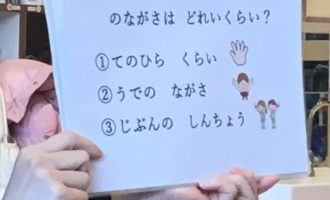 のながさは どれいくらい？
①てのひら くらい
②うでの ながさ
③じぶんの しんちょう